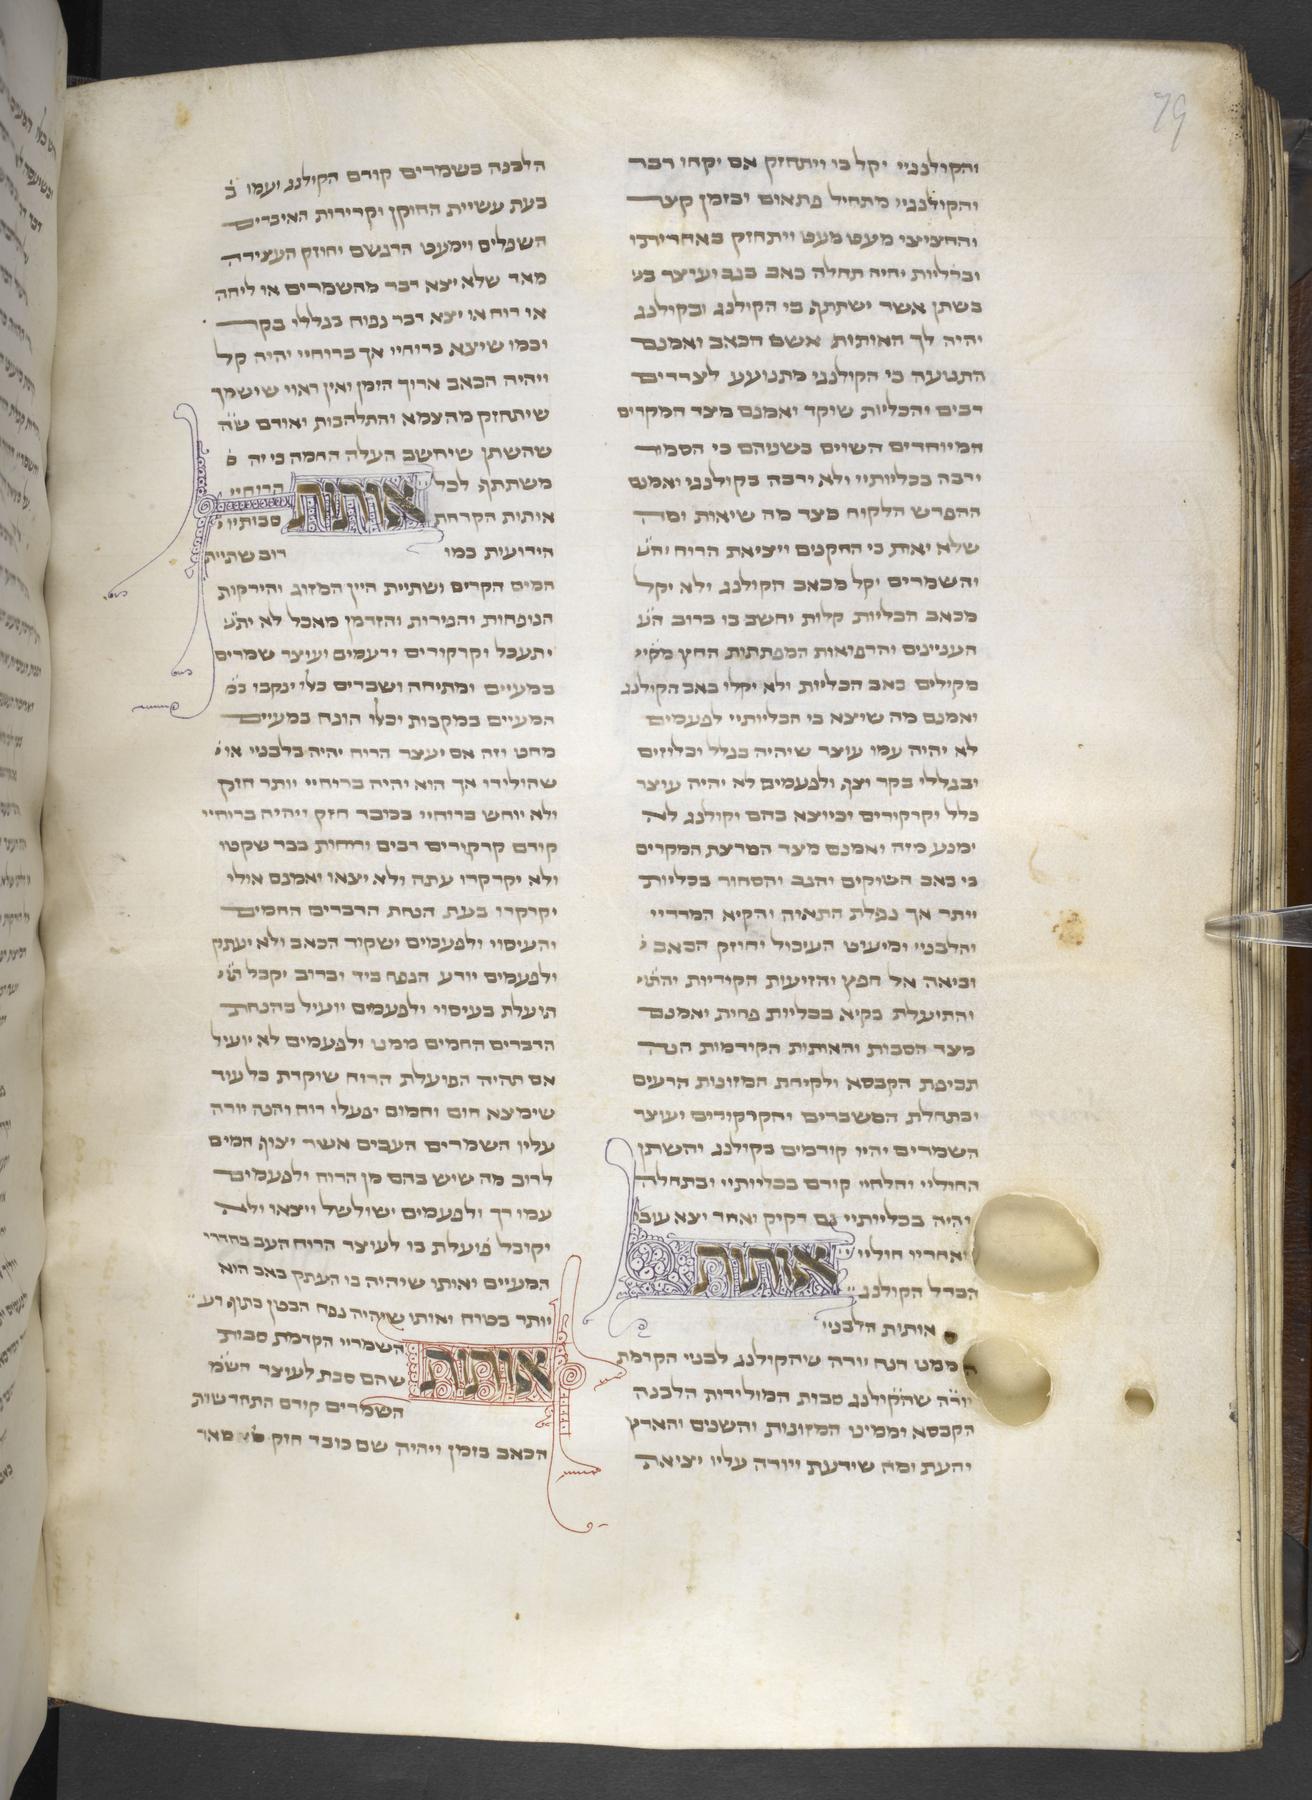 79
והקולנגיי יקל בו ויתחזק אם יקחו דבר
והקולנגיי מתחיל פתאום ובזמן קצר
והחציצי מעט מעט ויתחזק באחריתו
ובכליות יהיה תחלה כאב בגב ויעוצר בש
בשתן אשר ישתתף בו הקולנג ובקולנג
יהיה לך האותות אשם הכאב ואמנם
התנועה כי הקולנגי מתנועע לצדדים
רבים והכליות שוקד ואמנם מצד המקרים
המיוחדים השוים בשניהם כי הסמור
ירבה בכליותיי ולא ירבה בקולנגי ואמנם
ההפרש הלקוח מצד מה שיאות ומה
שלא יאות כי החקנים ויציאת הרוח יהש
והשמרים יקל מכאב הקולנג ולא יקל
מכאב הכליות קלות יחשב בו ברוב הע
העניינים והרפואות המפתתות החץ מקיי
מקילים כאב הכליות ולא יקלו כאב הקולנג
ואמנם מה שיצא כי הכליותיי לפעמים
לא יהיה עמו עוצר שיהיה כגלל וכלוזים
וכגללי בקר וצף ולפעמים לא יהיה עוצר
כלל וקרקורים וכיוצא בהם וקולנג לא
ימנע מזה ואמנם מצד המרצת המקרים
כי כאב השוקים והגב והסחור בכליות
יותר אך נפלת התאוה והקיא המרריי
והלבניי ומיעוט העיכול וחוזק הכאב
וביאה אל חפץ והזיעות הקירות יהתוי
והתועלת בקיא בכליות פחות ואמנם
מצד הסבות והאותות הקודמות הנה
תכיפת הקבסא ולקיחת המזונות הרעים
ובתחלת המשברים והקרקורים ועוצר
השמרים יהיו קודמים בקולנג והשתן
החוליי והלחיי קודם בכליותיי ובתחלה
יהיה בכליותיי גם דקיק ואחר יצא עוב
ואחריו חוליי אותות
הבדל הקולנג
אותות הלבניי
ממט הנה יורה שהקולנג לבני הקדמת
יורה שהקולנג סבות המולידות הלבנה
הקבסא וממיט המזונות והשנים והארץ
והעת ומה שידעת ויורה עליו יציאת
הלבנה בשמרים קודם הקולנג ועמו ב
בעת עשיית החוקן וקרירות האיברים
השפלים וימעט הרגשם יחוזק העצירה
מאד שלא יצא דבר מהשמרים או ליחה
או רוח או יצא דבר נפוח כגללי בקר
וכמו שיצא ברוחיי אך ברוחיי יהיה קל
ויהיה הכאב ארוך הזמן ואין ראוי שישמך
שיתחזק מהצמא והתלהבות ואודם שה
שהשתן שיחשב העלה החמה כי יה ס
משתתף לכל אותות הרוחיי
אותות הקרחת סבותיו
הידועות כמו רוב שתיית
המים הקרים ושתיית היין המזוג והירקות
הנופחות והפירות והזדמן מאכל לא יתע
יתעכל וקרקורים ודעמים ועוצר שמרים
במעיים ומתיחה ושברים כלו ינקבו במ
המעיים במקבות וכלו הונח במעיים
מחט וזה אם יעצר הרוח יהיה בלבני או
שהולידו אך הוא יהיה ברוחיי יותר חזק
ולא יוחש ברוחיי בכובד חזק ויהיה ברוחיי
קודם קרקורים רבים ורוחות כבר שקטו
ולא יקרקרו עתה ולא יצאו ואמנם אולי
יקרקרו בעת הנחת הדברים החמים
והעיסוי ולפעמים ישקוד הכאב ולא יעתק
ולפעמים יודע הנפח ביד וברוב יקבל תוי
תועלת בעיסוי ולפעמים יועיל בהנחת
הדברים החמים ממט ולפעמים לא יועיל
אם תהיה הפועלת הרוח שוקדת כל עוד
שימצא חום וחמום יפעלו רוח והנה יורה
עליו השמרים העבים אשר יצוף המים
לרוב מה שיש בהם מן הרוח ולפעמים
עמו רך ולפעמים ישולשל ויצאו ולא
יקובל פועלת בו לעוצר הרוח העב בחדרי
המעיים ואותו שיהיה בו העתק כאב הוא
יותר בטוח ואותו שיהיה נפח הבטן כתוף רע
אותות השמריי הקדמת סבות
שהם סבת לעוצר השמ
השמרים קודם התחדשות
הכאב בזמן ויהיה שם כובד חזק מאד